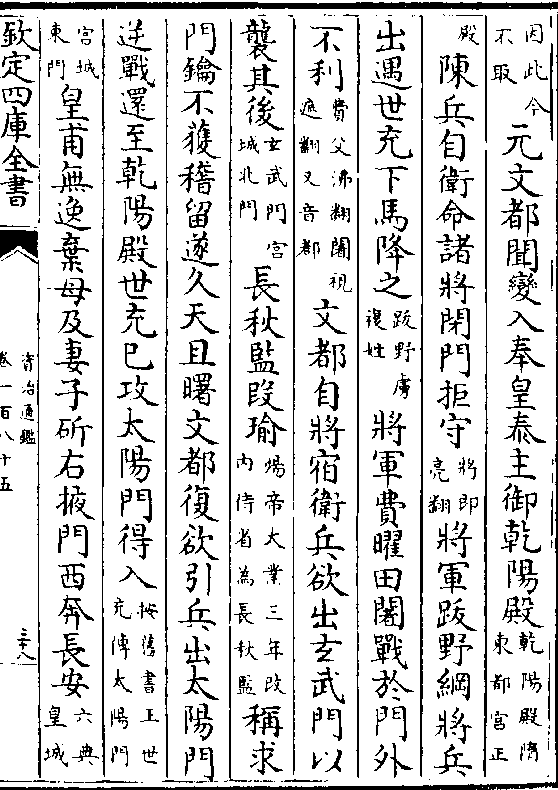 因此今不取元文都聞變入奉皇泰主御乾陽殿乾陽殿隋東都宮正
殿陳兵自衛命諸將閉門拒守將即亮翻將軍跋野綱將兵
出遇世充下馬降之跋野虜複姓將軍費曜田闍戰於門外
不利費父沸翻闍視遮翻又音都文都自將宿衛兵欲出玄武門以
襲其後玄武門宮城北門長秋監段瑜煬帝大業三年改內侍省為長秋監稱求
門鑰不獲稽留遂久天且曙文都復欲引兵出太陽門
逆戰還至乾陽殿世充已攻太陽門得入按舊書王世充傳太陽門
宮城東門皇甫無逸棄母及妻子斫右掖門西奔長安六典皇城
欽定四庫全書
資治通鑑
卷一百八十五
三十八